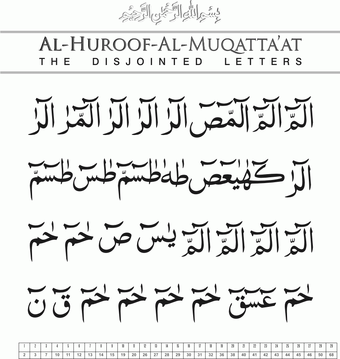 بِسْمِ اللهِ الرَّحْمٰنِ الرَّحِيْمِ
AL-HUROOF-AL-MUQATTA'AT
THE DISJOINTED LETTERS
الٓمّٓ الٓمّٓ الٓمّٓصٓ الٓرٰ الٓرٰ الٓرٰ الٓمّٓرٰ الٓرٰ
الٓرٰ كٓهٰيٰعٓصٓ طٰهٰ طٰسٓمّٓ طٰسٓ طٰسٓمّٓ
الٓمّٓ الٓمّٓ الٓمّٓ الٓمّٓ يٰسٓ صٓ حٰمٓ حٰمٓ
حٰمٓ عٓسٓقٓ حٰمٓ حٰمٓ حٰمٓ حٰمٓ قٓ نٓ